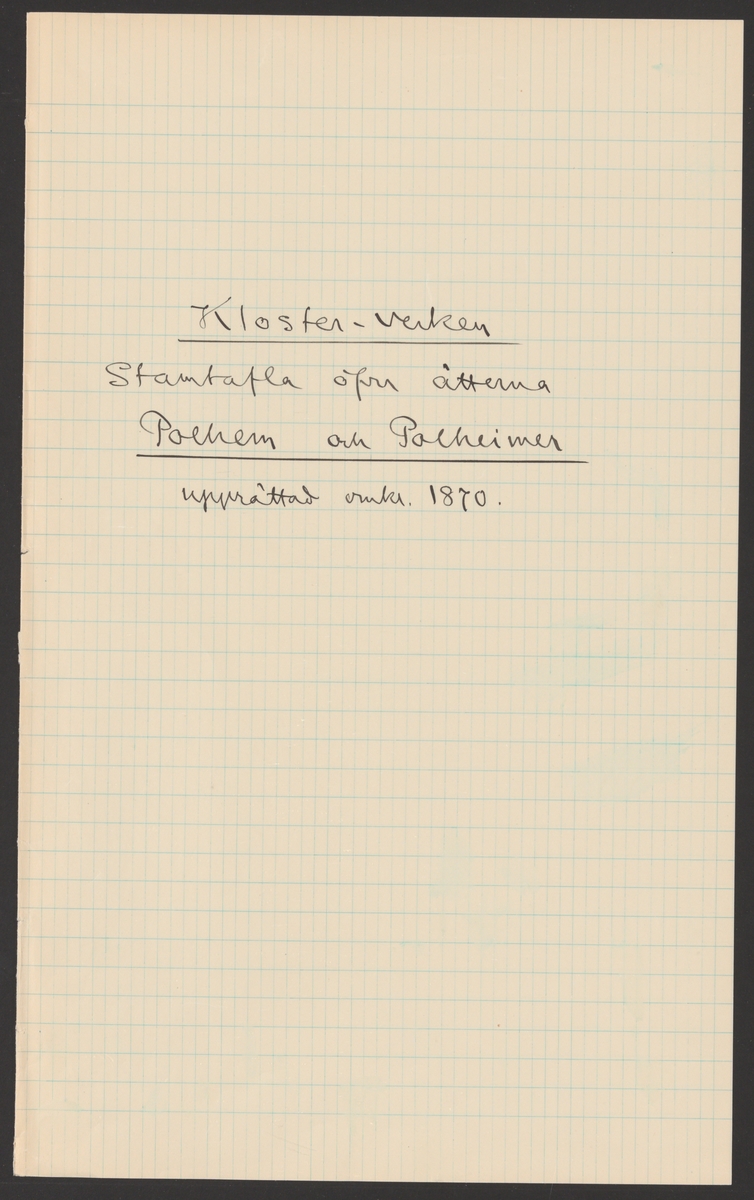 Kloster-verken
Stamtafla öfver ätterna
Polhem och Polheimer
upprättad omkr. 1870.